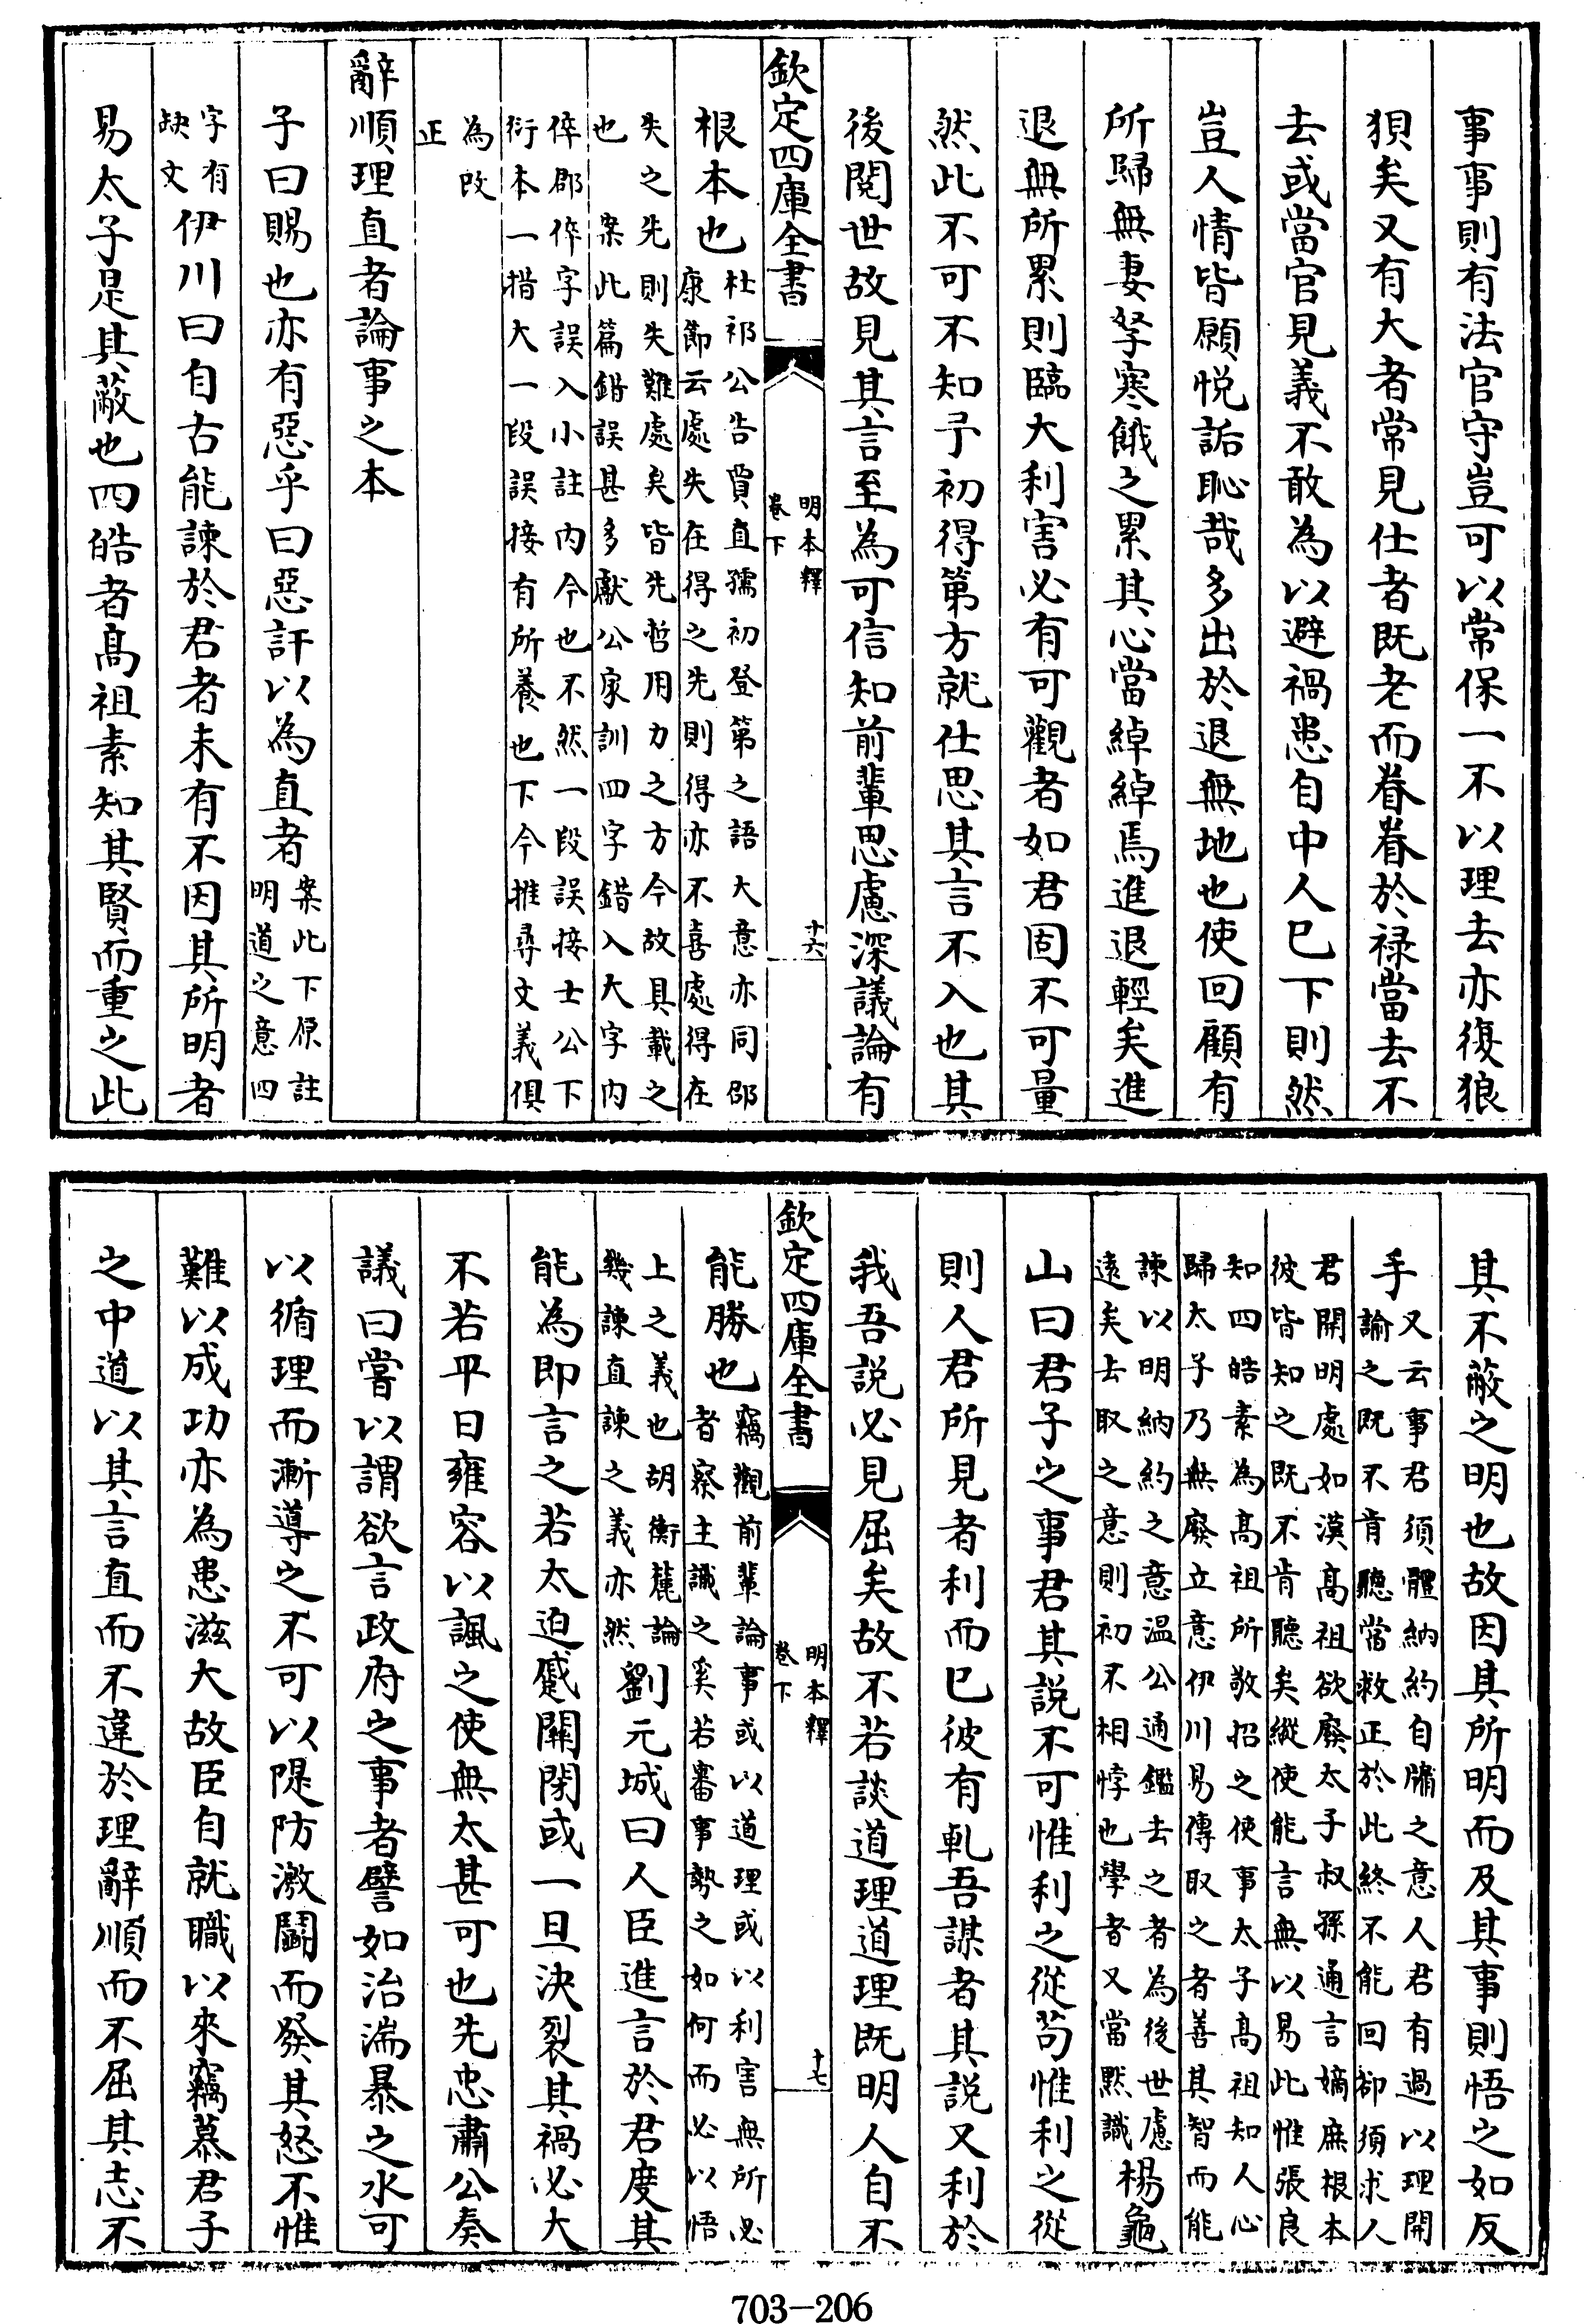 事事則有法官守豈可以常保一不以理去亦復狼
狽矣又有大者常見仕者既老而眷眷於祿當去不
去或當官見義不敢為以避禍患自中人已下則然
豈人情皆願悅詬恥哉多出於退無地也使回顧有
所歸無妻孥寒餓之累其心當綽綽焉進退輕矣進
退無所累則臨大利害必有可觀者如君固不可量
然此不可不知予初得第方就仕思其言不入也其
後閱世故見其言至為可信知前輩思慮深議論有
欽定四庫全書 明本釋 卷下 十六
根本也杜祁公告賈直孺初登第之語大意亦同邵
康節云處失在得之先則得亦不喜處得在
失之先則失難處矣皆先哲用力之方今故具載之
也 案此篇錯誤甚多獻公家訓四字錯入大字內
倅郡倅字誤入小註內今也不然一段誤接士公下
衍本一措大一段誤接有所養也下今推尋文義俱
為改
正
辭順理直者論事之本
子曰賜也亦有惡乎曰惡訐以為直者案此下原註
明道之意四
字有
缺文伊川曰自古能諫於君者未有不因其所明者
易太子是其蔽也四皓者高祖素知其賢而重之此
其不蔽之明也故因其所明而及其事則悟之如反
手又云事君須體納約自牖之意人君有過以理開
諭之既不肯聽當救正於此終不能回卻須求人
君開明處如漢高祖欲廢太子叔孫通言嫡庶根本
彼皆知之既不肯聽矣縱使能言無以易此惟張良
知四皓素為高祖所敬招之使事太子高祖知人心
歸太子乃無廢立意伊川易傳取之者善其智而能
諫以明納約之意溫公通鑑去之者為後世慮
遠矣去取之意則初不相悖也學者又當默識楊龜
山曰君子之事君其說不可惟利之從苟惟利之從
則人君所見者利而已彼有軋吾謀者其說又利於
我吾說必見屈矣故不若談道理道理既明人自不
欽定四庫全書 明本釋 卷下 十七
能勝也竊觀前輩論事或以道理或以利害無所必
者察主識之奚若審事勢之如何而必以悟
上之義也胡衡麓論
幾諫直諫之義亦然劉元城曰人臣進言於君度其
能為即言之若太迫蹙關閉或一旦決裂其禍必大
不若平日雍容以諷之使無太甚可也先忠肅公奏
議曰嘗以謂欲言政府之事者譬如治湍暴之水可
以循理而漸導之不可以隄防激鬭而發其怒不惟
難以成功亦為患滋大故臣自就職以來竊慕君子
之中道以其言直而不違於理辭順而不屈其志不
703-206